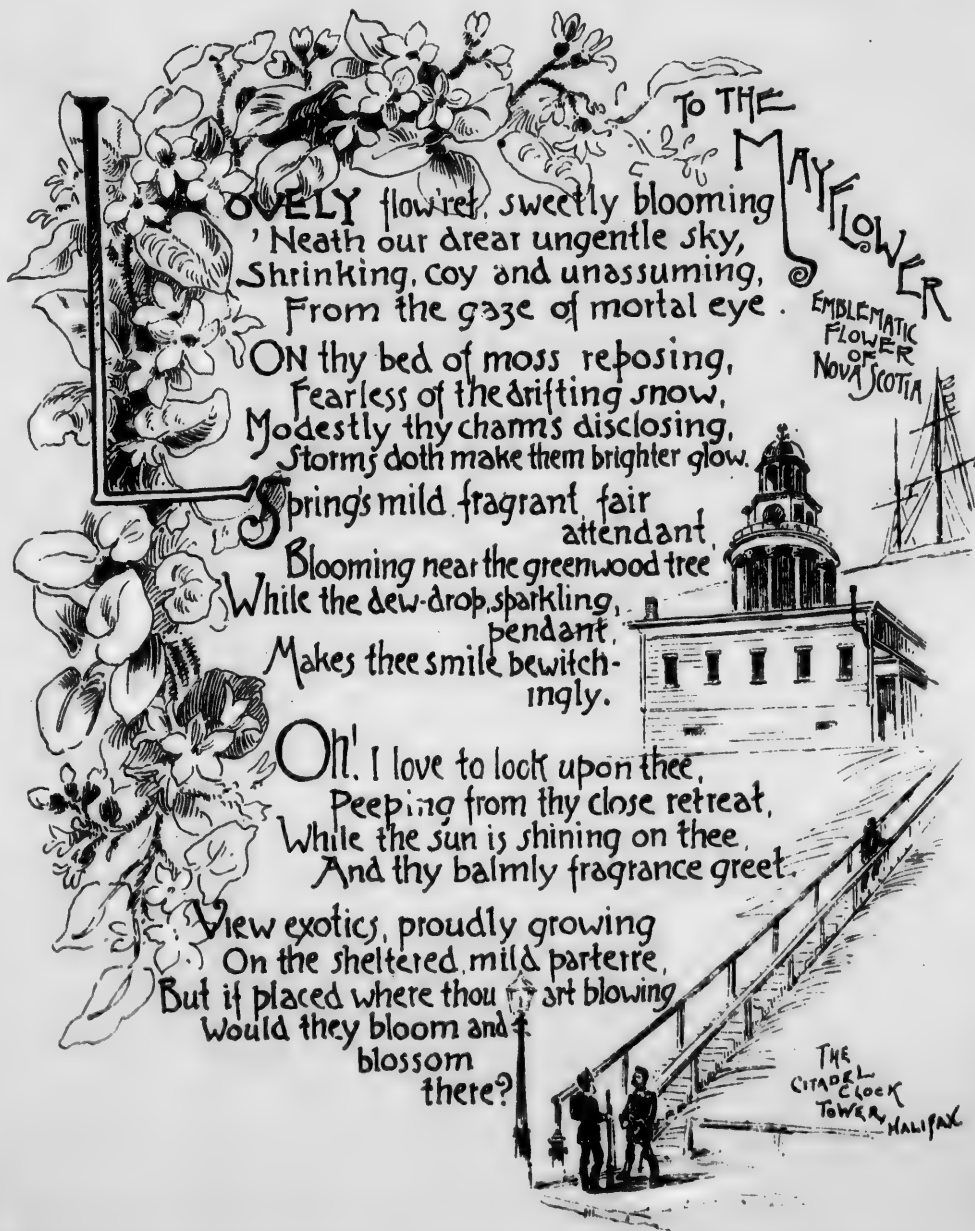 TO THE
MAYFLOWER
EMBLEMATIC
FLOWER
OF
NOVA SCOTIA
LOVELY flow'ret, sweetly blooming
'Neath our drear ungentle sky,
Shrinking, coy and unassuming,
From the gaze of mortal eye.
ON thy bed of moss reposing,
Fearless of the drifting snow,
Modestly thy charms disclosing,
Storms doth make them brighter glow.
Spring's mild, fragrant, fair
attendant,
Blooming near the greenwood tree
While the dew-drop, sparkling,
pendant,
Makes thee smile bewitch-
ingly.
Oh! I love to look upon thee,
Peeping from thy close retreat,
While the sun is shining on thee,
And thy balmly fragrance greet.
View exotics, proudly growing
On the sheltered, mild parterre,
But if placed where thou art blowing
Would they bloom and
blossom
there?
THE
CITADEL
CLOCK
TOWER,
HALIFAX